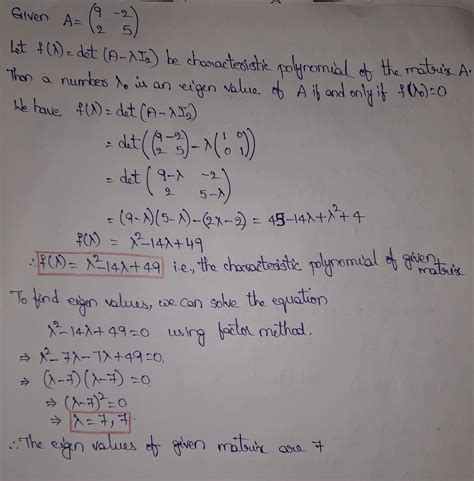 Given A = (9 -2
2 5)
Let f(λ) = det (A-λI₂) be characteristic polynomial of the matrix A.
Then a number λ₀ is an eigen value of A if and only if f(λ₀)=0
We have f(λ) = det (A-λI₂)
= det ((9 -2
2 5) - λ(1 0
0 1))
= det (9-λ -2
2 5-λ)
= (9-λ)(5-λ) - (2x-2) = 45-14λ+λ²+4
f(λ) = λ²-14λ+49
∴ f(λ) = λ²-14λ+49 i.e., the characteristic polynomial of given matrix
To find eigen values, we can solve the equation
λ²-14λ+49=0 using factor method.
⇒ λ²-7λ-7λ+49=0.
⇒ (λ-7)(λ-7)=0
⇒ (λ-7)²=0
⇒ λ=7, 7.
∴ The eigen values of given matrix are 7